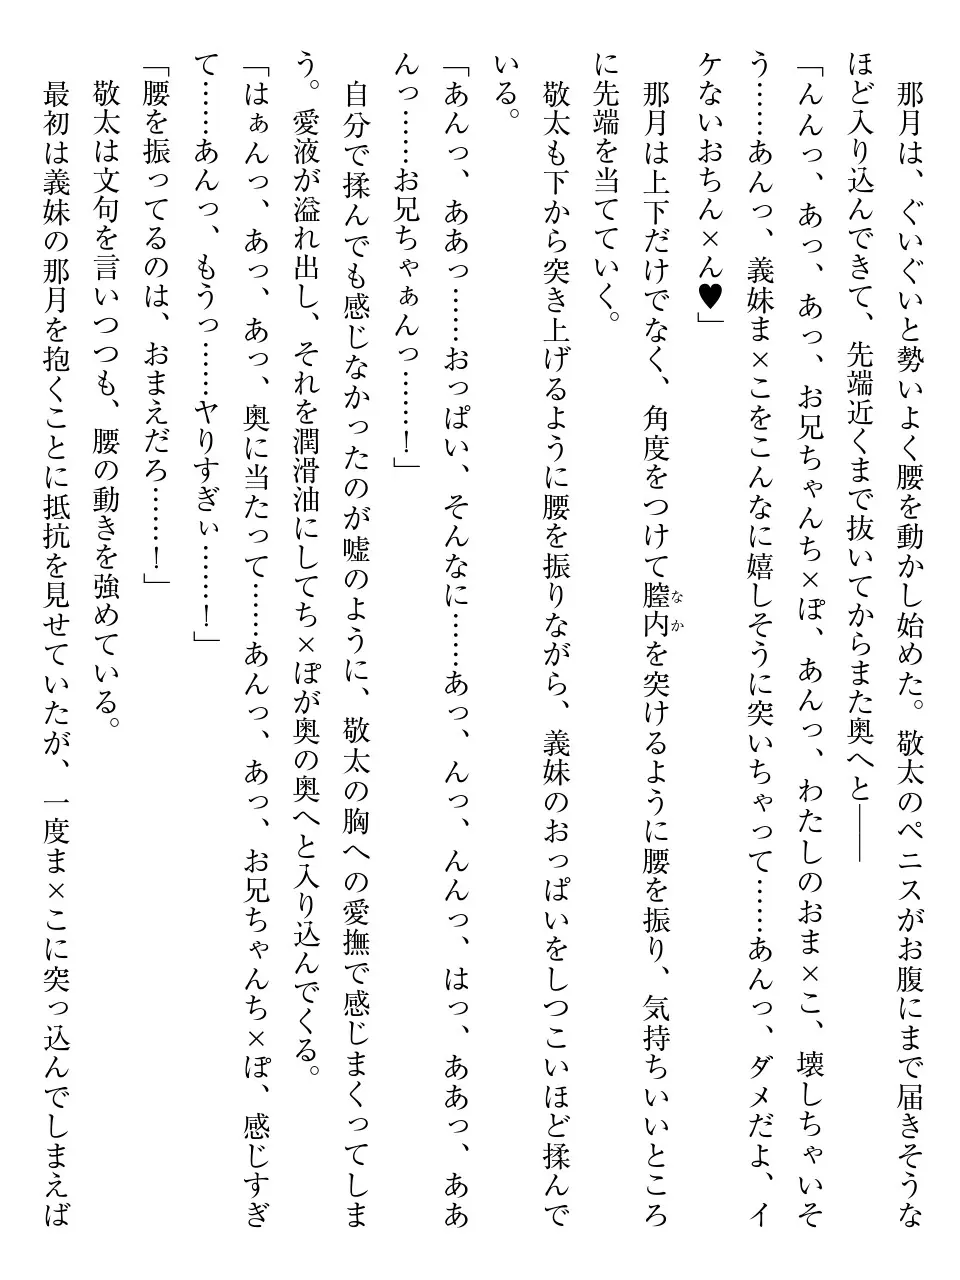 那月は、ぐいぐいと勢いよく腰を動かし始めた。敬太のペニスがお腹にまで届きそうな
ほど入り込んできて、先端近くまで抜いてからまた奥へと――
「んんっ、あっ、あっ、お兄ちゃんち×ぽ、あんっ、わたしのおま×こ、壊しちゃいそ
う……あんっ、義妹ま×こをこんなに嬉しそうに突いちゃって……あんっ、ダメだよ、イ
ケないおちん×ん♥」
那月は上下だけでなく、角度をつけて膣内を突けるように腰を振り、気持ちいいところ
なか
に先端を当てていく。
敬太も下から突き上げるように腰を振りながら、義妹のおっぱいをしつこいほど揉んで
いる。
「あんっ、ああっ……おっぱい、そんなに……あっ、んっ、んんっ、はっ、ああっ、ああ
んっ……お兄ちゃぁんっ……！」
自分で揉んでも感じなかったのが嘘のように、敬太の胸への愛撫で感じまくってしま
う。愛液が溢れ出し、それを潤滑油にしてち×ぽが奥の奥へと入り込んでくる。
「はぁんっ、あっ、あっ、奥に当たって……あんっ、あっ、お兄ちゃんち×ぽ、感じすぎ
て……あんっ、もうっ……ヤりすぎぃ……！」
「腰を振ってるのは、おまえだろ……！」
敬太は文句を言いつつも、腰の動きを強めている。
最初は義妹の那月を抱くことに抵抗を見せていたが、一度ま×こに突っ込んでしまえば